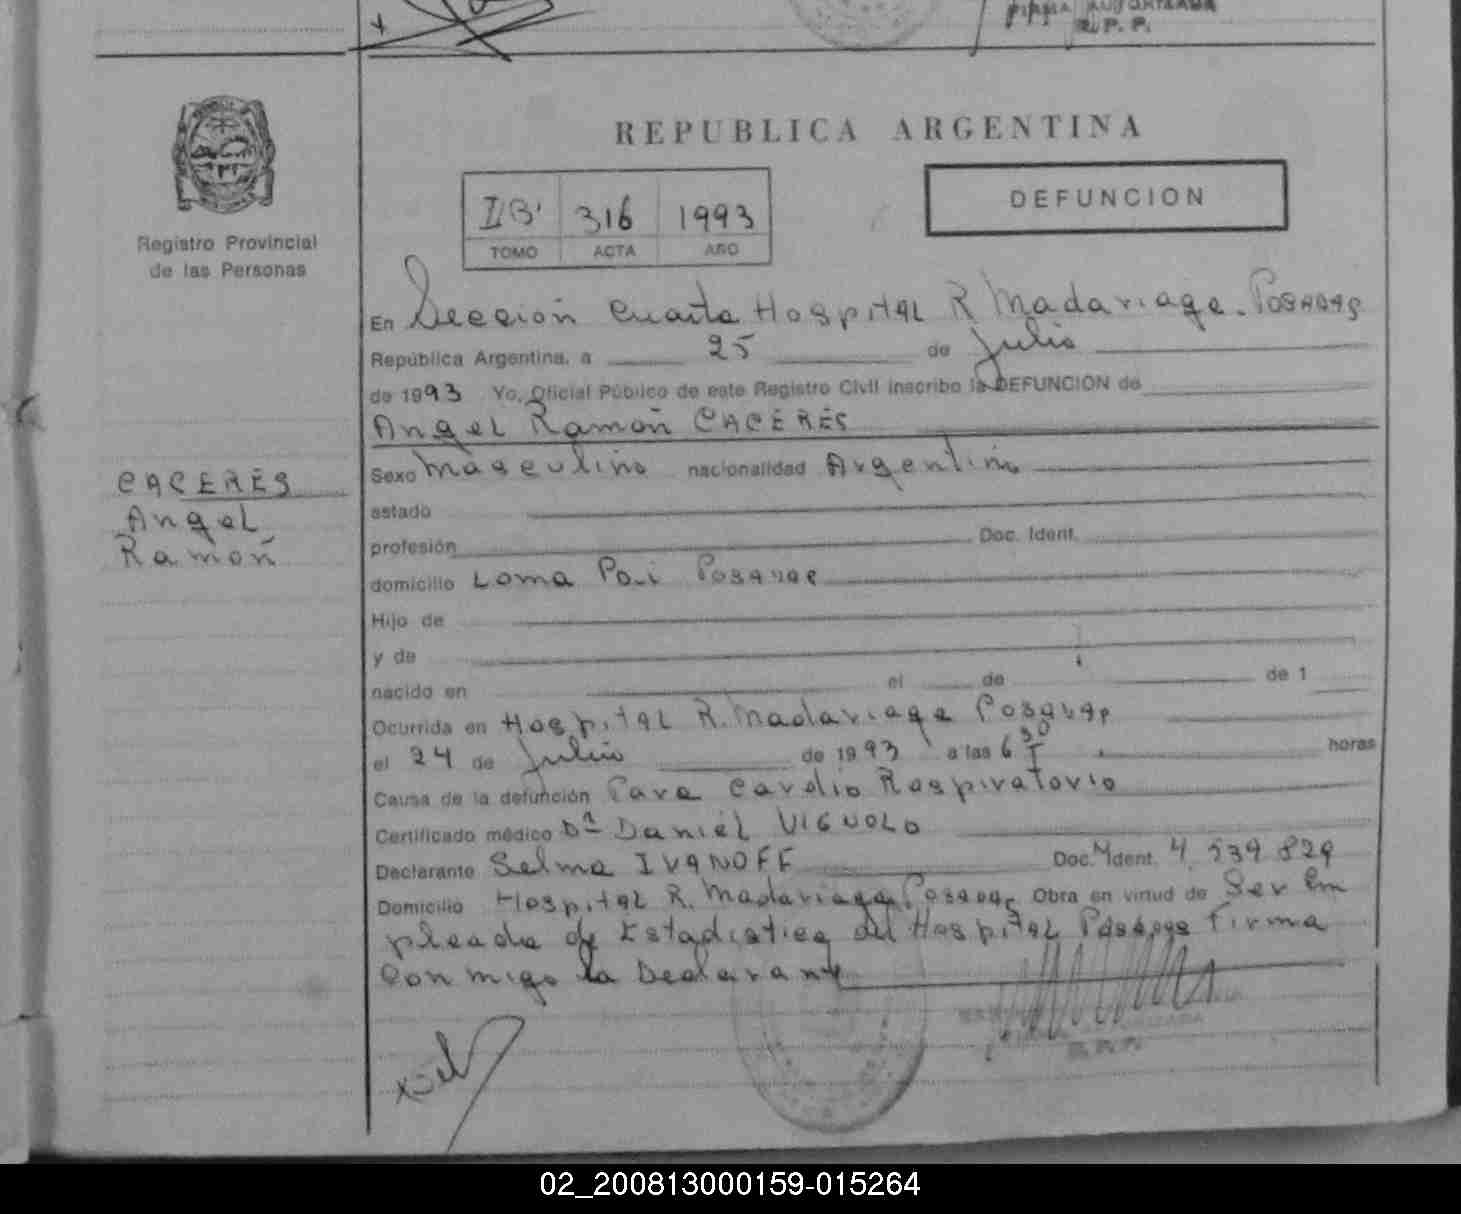 FIRMA AUTORIZADA
R. P. P.
REPUBLICA ARGENTINA
IIB' 316 1993
TOMO ACTA AÑO
DEFUNCION
Registro Provincial
de las Personas
En Sección Cuarta Hospital R Madariaga. Posadas
República Argentina, a 25 de Julio
de 1993 Yo, Oficial Público de este Registro Civil inscribo la DEFUNCION de
Angel Ramón CACERES
Sexo Masculino nacionalidad Argentino
CACERES
Angel
Ramón
estado
profesión Doc. Ident.
domicilio Loma Poi Posadas
Hijo de
y de
nacido en el de de 1
Ocurrida en Hospital R. Madariaga Posadas
el 24 de Julio de 1993 a las 6 30 horas
Causa de la defunción Paro Cardio Respiratorio
Certificado médico Dr Daniel VIGNOLO
Declarante Selma IVANOFF Doc. Ident. 4.539.829
Domicilio Hospital R. Madariaga Posadas Obra en virtud de Ser Em
pleada de Estadistica del Hospital Posadas Firma
Conmigo la Declarante
R.P.P.
02_200813000159-015264